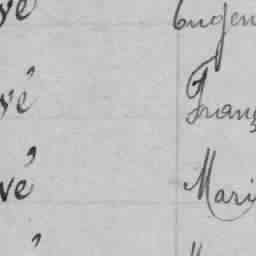 vé Eugen
vé Franç
vé Mari